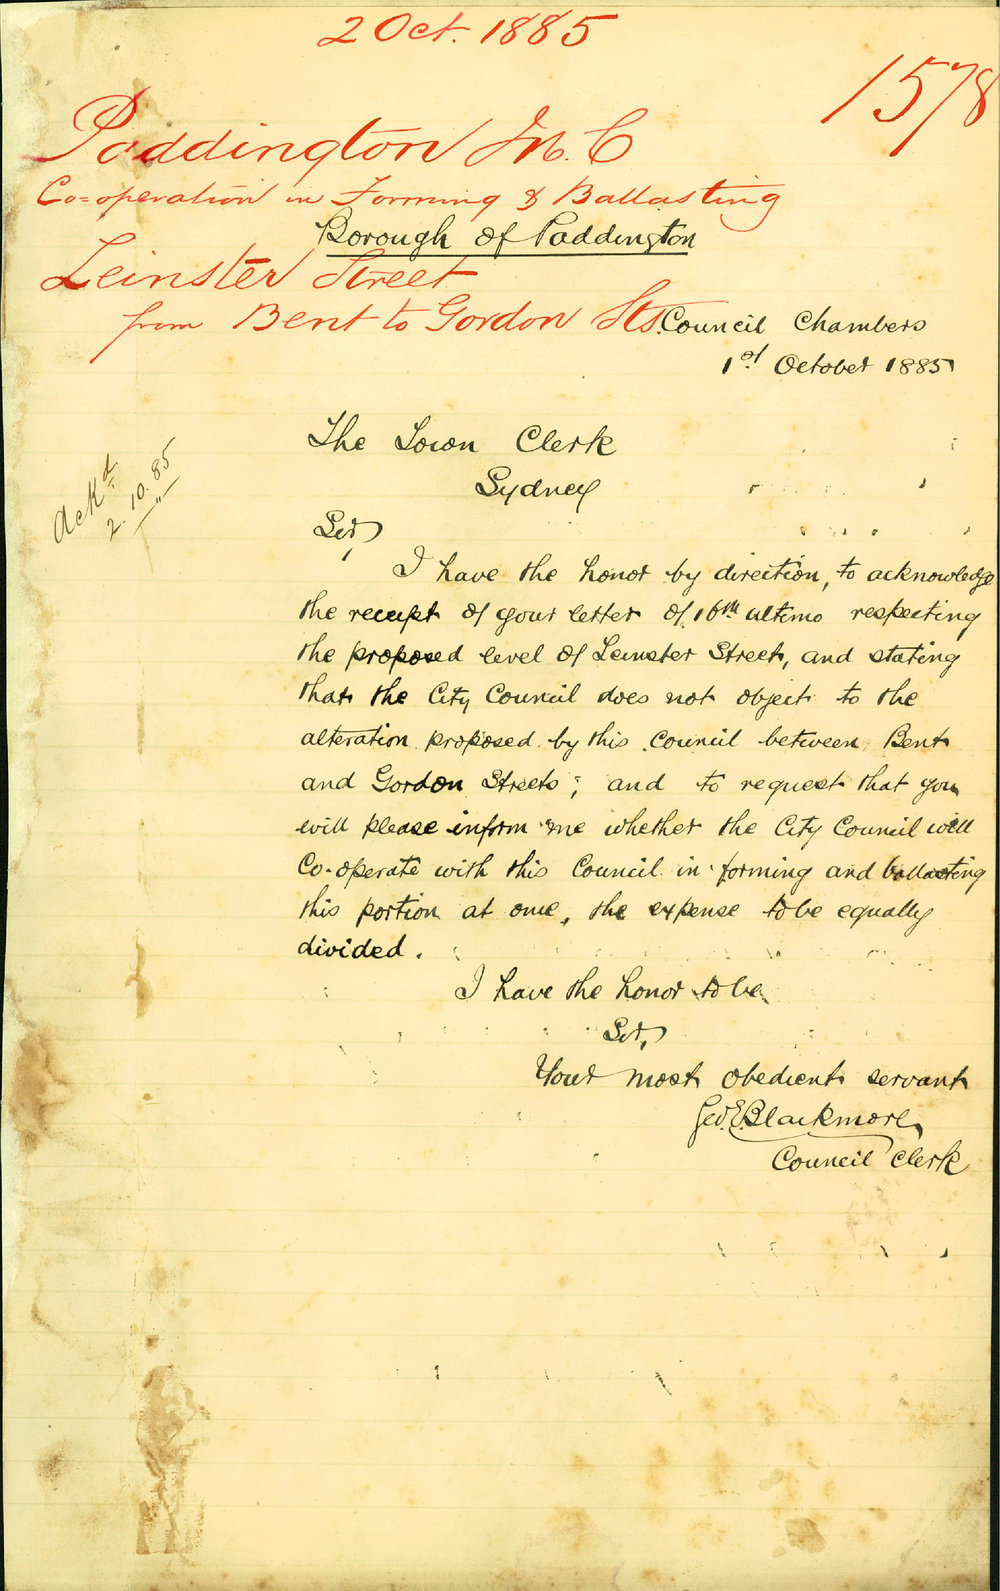 2 Oct. 1885
1578
Paddington M. C
Co=operation in Forming & Ballasting
Borough of Paddington
Leinster Street
from Bent to Gordon Sts.
Council Chambers
1st October 1885
The Town Clerk
Sydney
Ackd
2.10.85
Sir,
I have the honor by direction, to acknowledge
the receipt of your letter of 16th ultimo respecting
the proposed level of Leinster Street, and stating
that the City Council does not object to the
alteration proposed by this Council between Bent
and Gordon Streets; and to request that you
will please inform me whether the City Council will
Co-operate with this Council in forming and ballasting
this portion at once, the expense to be equally
divided.
I have the honor to be
Sir,
Your most obedient servant
Geo. E. Blackmore
Council Clerk